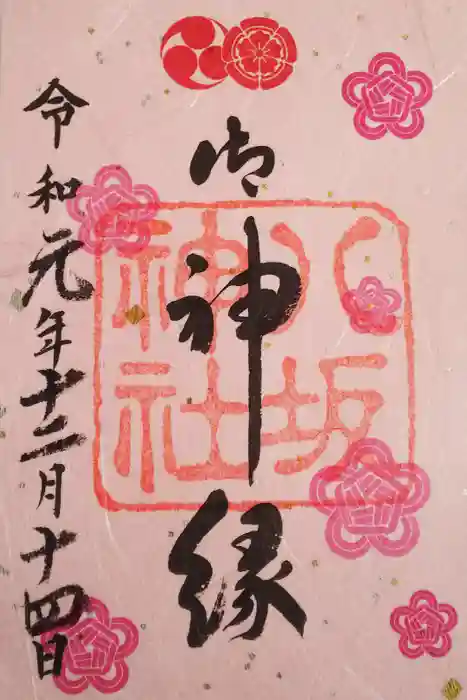 御神縁
八坂神社
令和元年十二月十四日